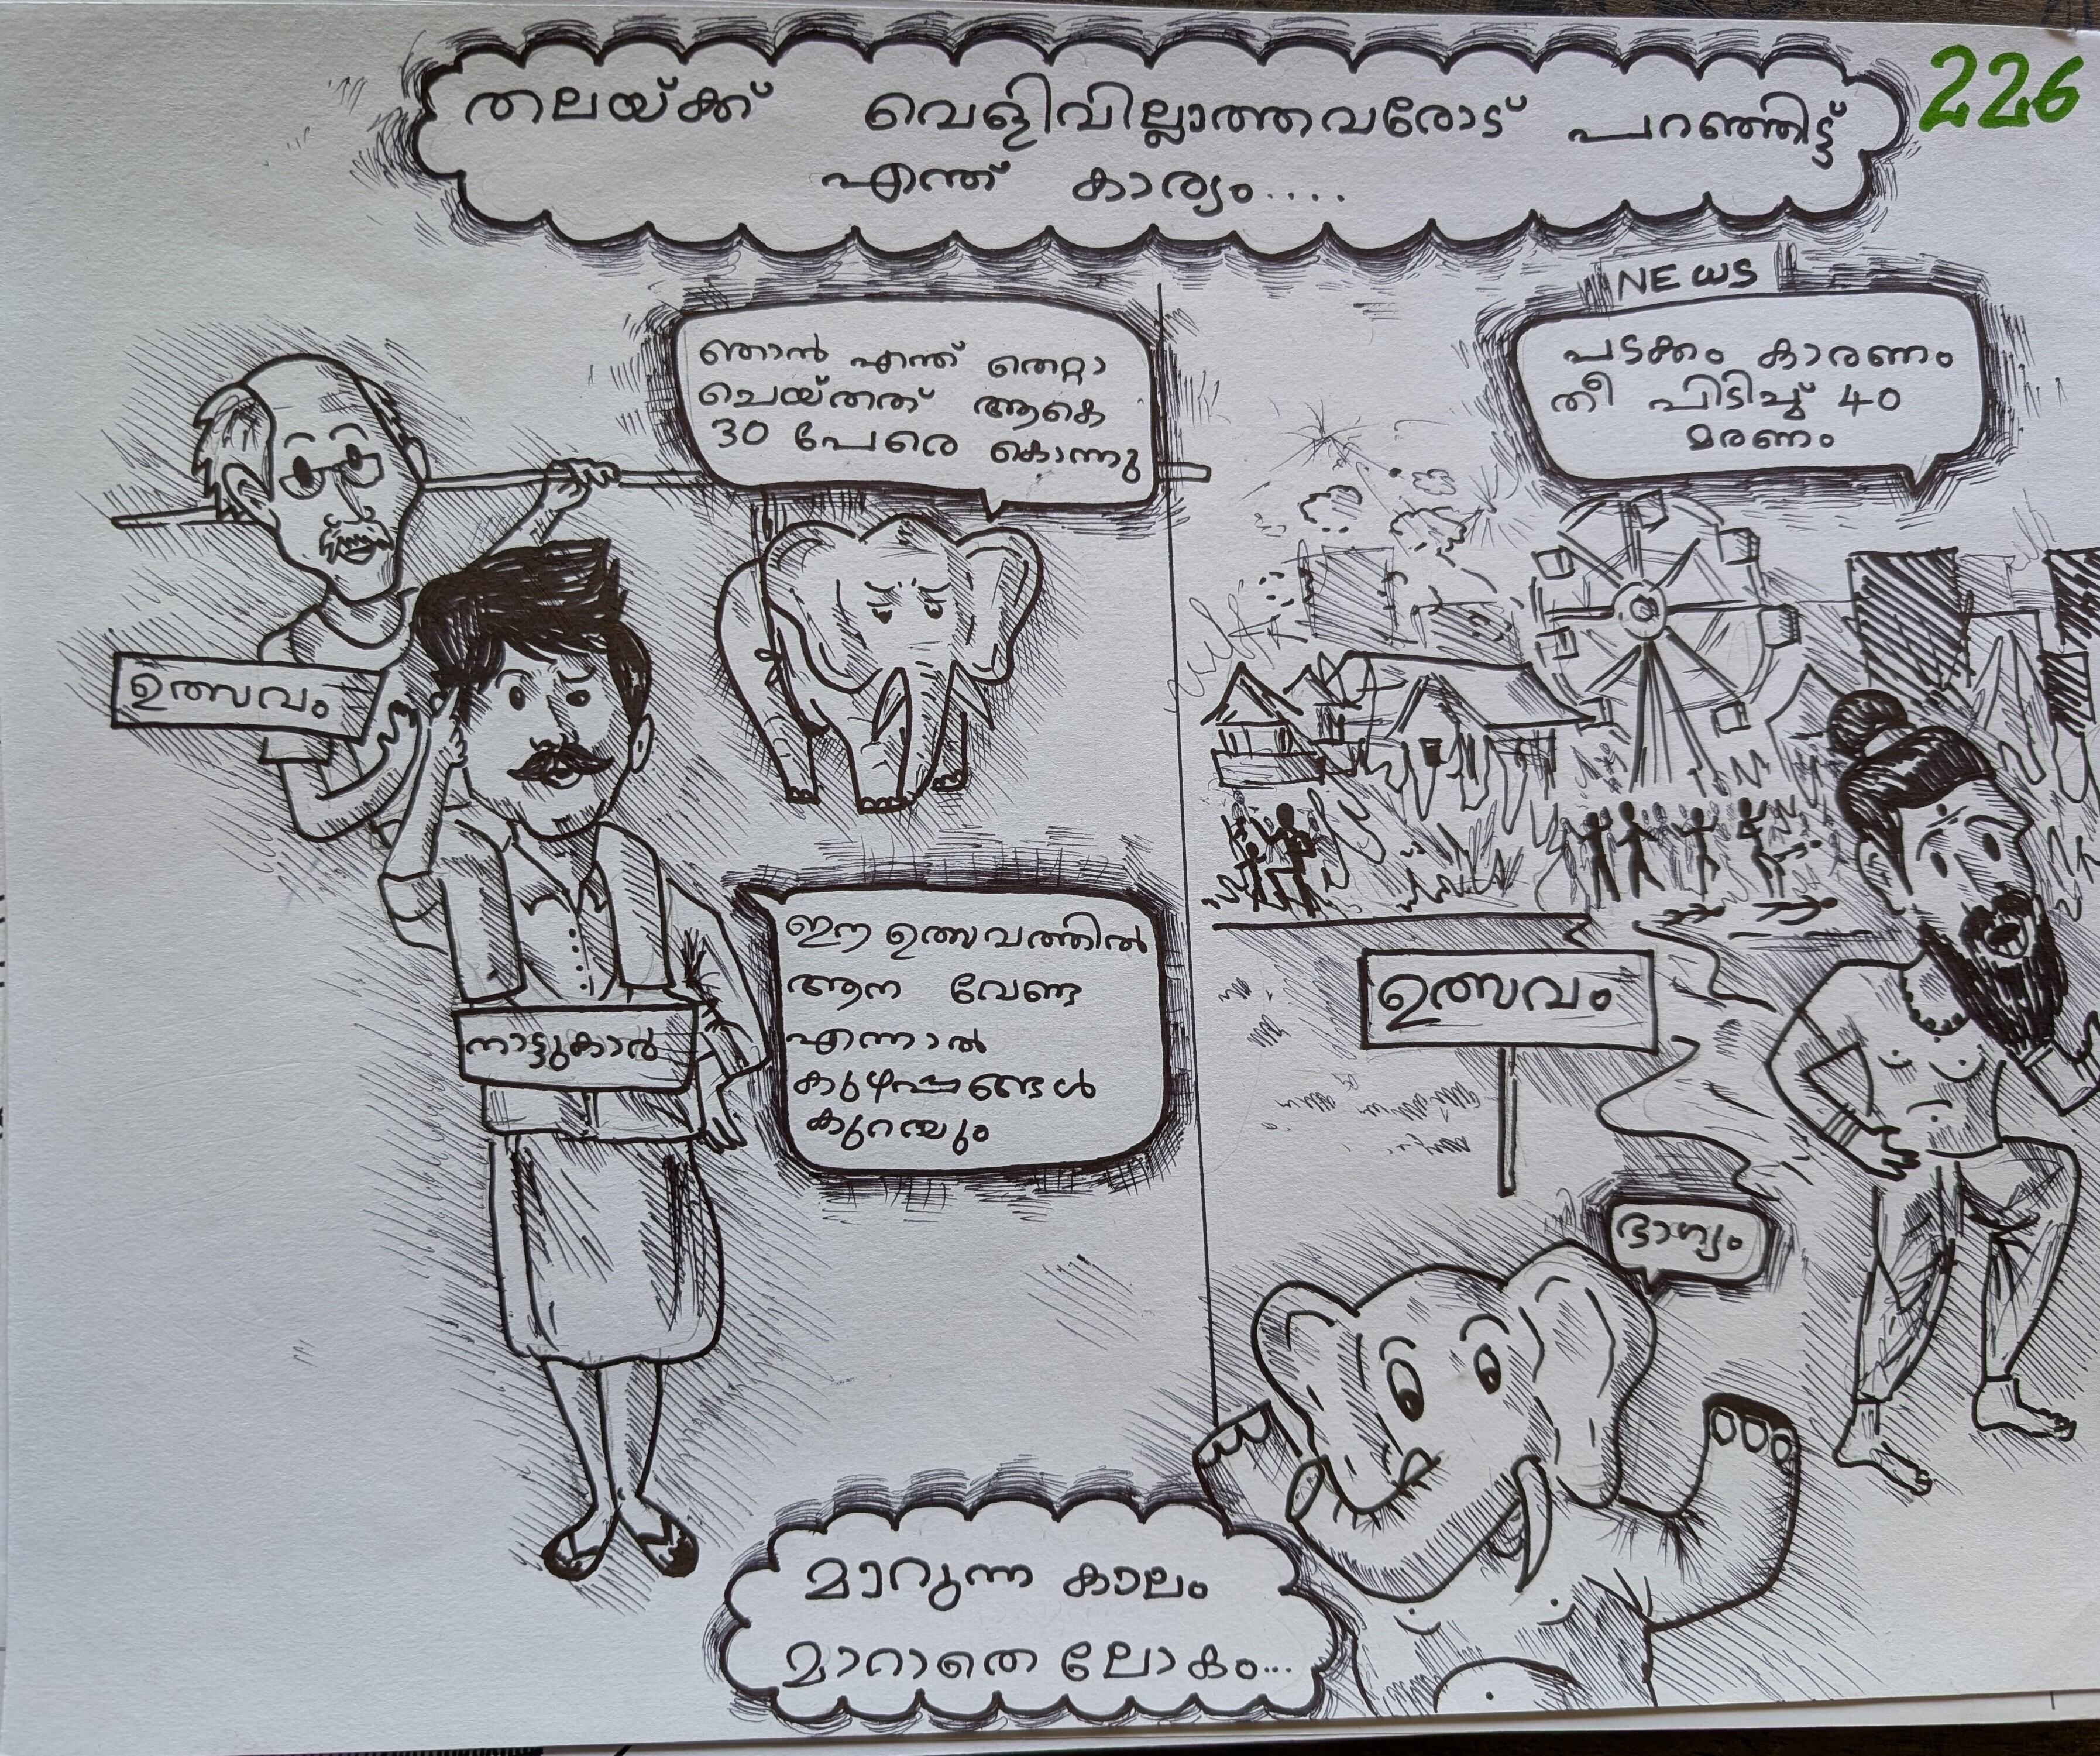 തലയ്ക്ക് വെളിവില്ലാത്തവരോട് പറഞ്ഞിട്ട്
എന്ത് കാര്യം....
226
ഞാൻ എന്ത് തെറ്റാ
ചെയ്തത് ആകെ
30 പേരെ കൊന്നു
ഉത്സവം
ഈ ഉത്സവത്തിൽ
ആന വേണ്ട
എന്നാൽ
കുഴപ്പങ്ങൾ
കുറയും
നാട്ടുകാർ
NEWS
പടക്കം കാരണം
തീ പിടിച്ച് 40
മരണം
ഉത്സവം
ഭാഗ്യം
മാറുന്ന കാലം
മാറാതെ ലോകം...